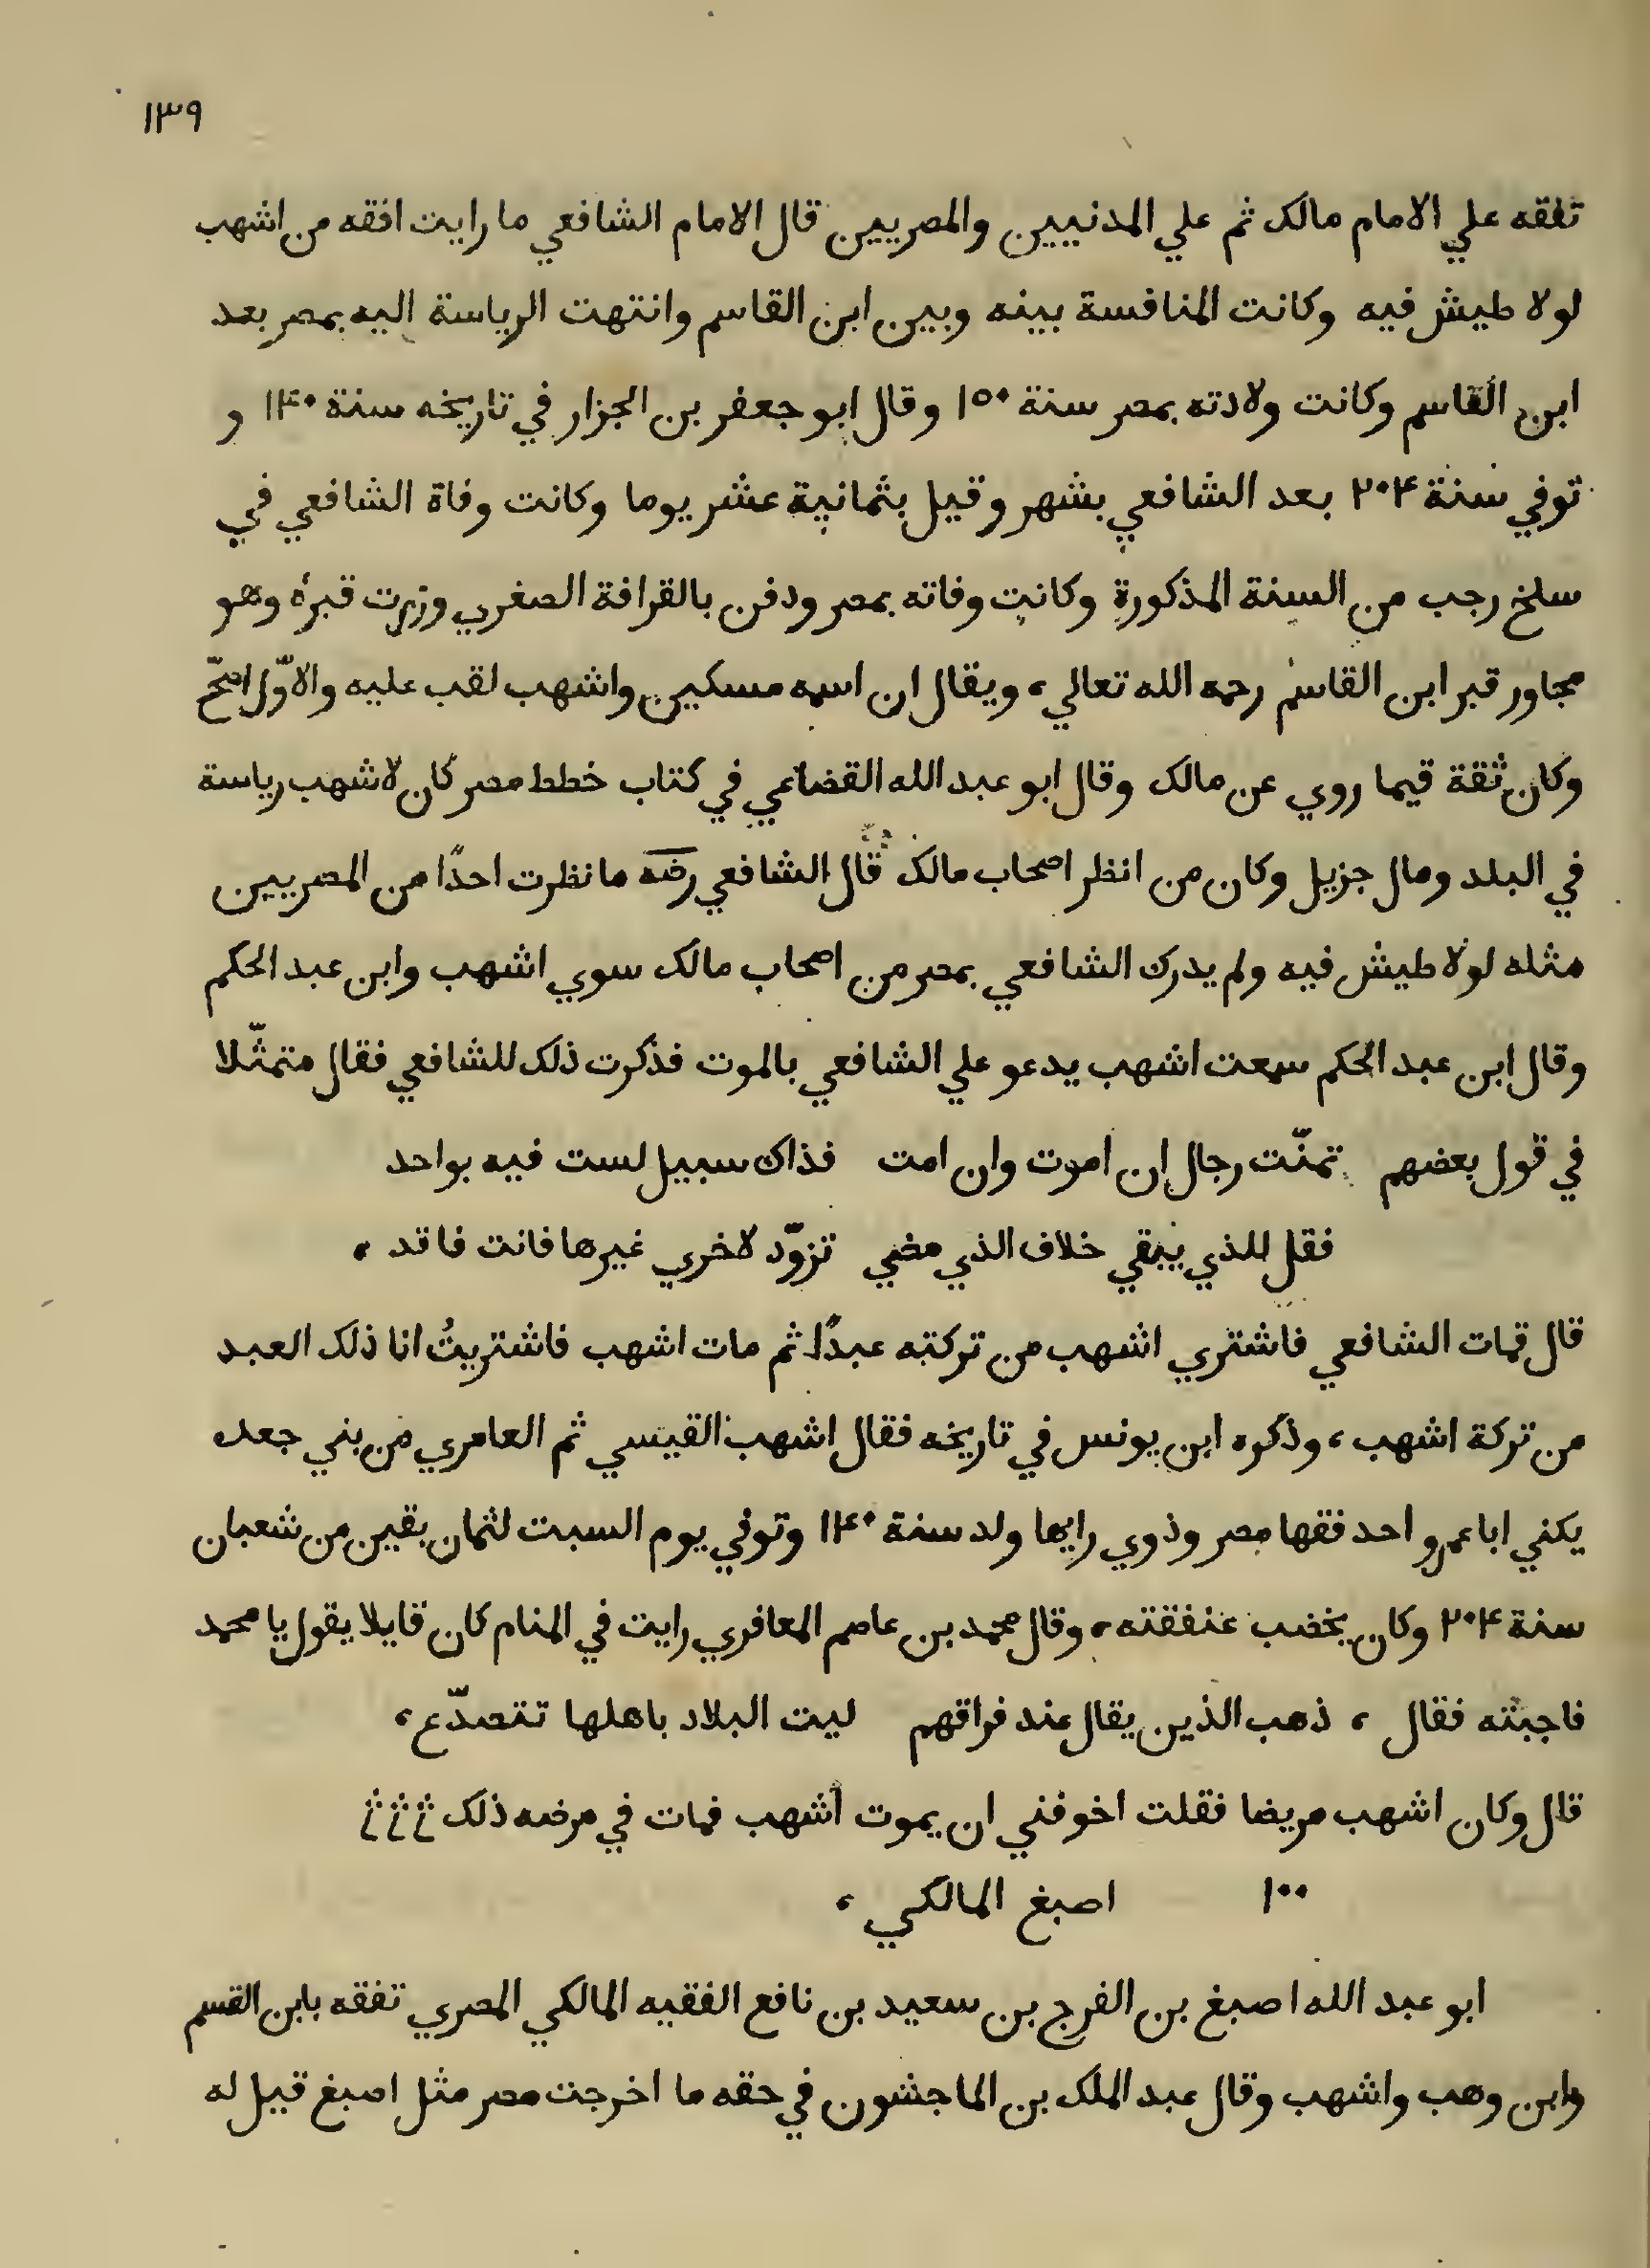 ١٣٩
تفقه علي الامام مالك ثم علي المدنيين والمصريين قال الامام الشافعي ما رايت افقه من اشهب
لولا طيش فيه وكانت المنافسة بينه وبين ابن القاسم وانتهت الرياسة اليه بمصر بعد
ابن القاسم وكانت ولادته بمصر سنة ١٥٠ وقال ابو جعفر بن الجزار في تاريخه سنة ١٤٠ و
توفي سنة ٢٠٤ بعد الشافعي بشهر وقيل بثمانية عشر يوما وكانت وفاة الشافعي في
سلخ رجب من السنة المذكورة وكانت وفاته بمصر ودفن بالقرافة الصغري وزرت قبره وهو
مجاور قبر ابن القاسم رحمه الله تعالي، ويقال ان اسمه مسكين واشهب لقب عليه والاوّل اصحّ
وكان ثقة فيما روي عن مالك وقال ابو عبد الله القضاعي في كتاب خطط مصر كان لاشهب رياسة
في البلد ومال جزيل وكان من انظر اصحاب مالك قال الشافعي رضه ما نظرت احدًا من المصريين
مثله لولا طيش فيه ولم يدرك الشافعي بمصر من اصحاب مالك سوي اشهب وابن عبد الحكم
وقال ابن عبد الحكم سمعت اشهب يدعو علي الشافعي بالموت فذكرت ذلك للشافعي فقال متمثّلا
في قول بعضهم تمنّت رجال ان اموت وان امت فذاك سبيل لست فيه بواحد
فقل للذي يبقي خلاف الذي مضي تزوّد لاخري غيرها فانت فاقد،
قال فمات الشافعي فاشتري اشهب من تركته عبدًا ثم مات اشهب فاشتريتُ انا ذلك العبد
من تركة اشهب، وذكره ابن يونس في تاريخه فقال اشهب القيسي ثم العامري من بني جعده
يكني ابا عمرو احد فقها مصر وذوي رايها ولد سنة ١٤٠ وتوفي يوم السبت لثمان بقين من شعبان
سنة ٢٠٤ وكان يخضب عنفقته، وقال محمد بن عاصم المعافري رايت في المنام كان قايلا يقول يا محمد
فاجبته فقال، ذهب الذين يقال عند فراقهم ليت البلاد باهلها تتصدّع،
قال وكان اشهب مريضا فقلت اخوفني ان يموت اشهب فمات في مرضه ذلك
١٠٠ اصبغ المالكي،
ابو عبد الله اصبغ بن الفرج بن سعيد بن نافع الفقيه المالكي المصري تفقه بابن القسم
وابن وهب واشهب وقال عبد الملك بن الماجشون في حقه ما اخرجت مصر مثل اصبغ قيل له